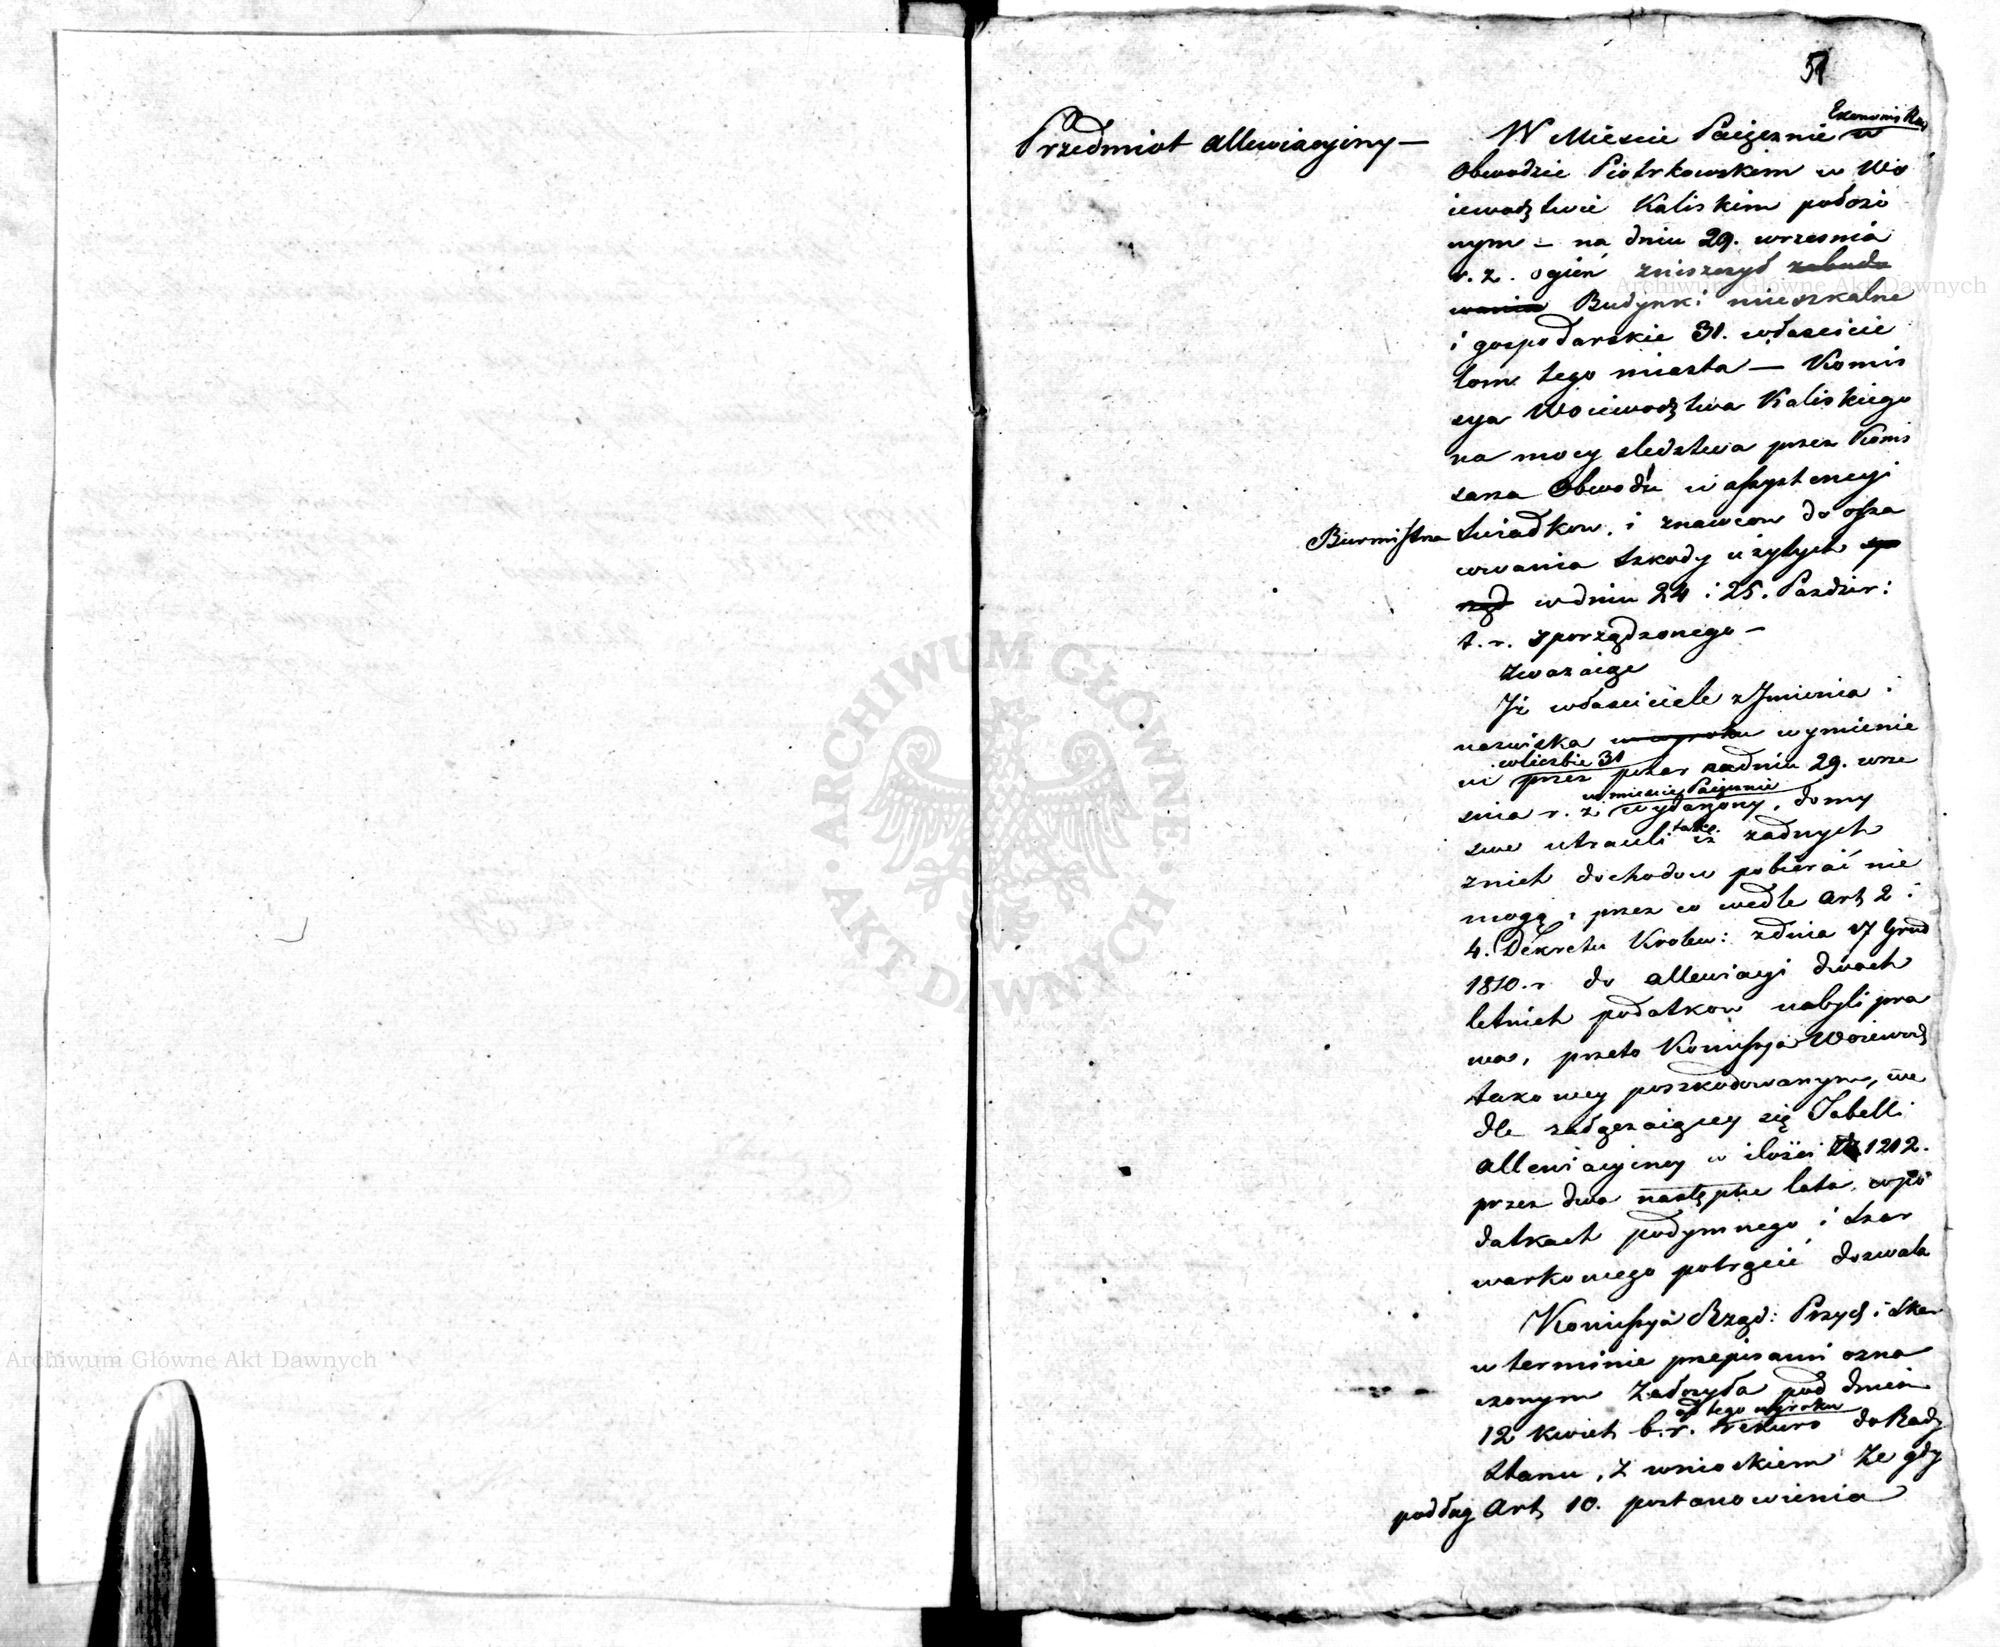 51
Przedmiot allewiacyiny —
W Mieście Paięcznie w
Obwodzie Piotrkowskim w Wo
iewodztwie Kaliskim położo
nym — na dniu 29. września
r. z. ogień zniszczył zabudo
wania Budynki mieszkalne
i gospodarskie 31. właścicie
lom tego miasta — Komis
sya Woiewodztwa Kaliskiego
na mocy sledztwa przez Komis
sarza Obwodu w assystencyi
Burmistrza swiadkow, i znawcow do osza
cowania szkody użytych spo
rząd w dniu 24 i 25. Pazdzier:
t. r. sporządzonego —
Zwazaiąc
Iż właściciele z Jmienia i
nazwiska w wyroku wymienie
ni w liczbie 31 przez pożar na dniu 29. wrze
snia r. z. w mieście Paięcznie wydarzony, domy
swe utracili także iż żadnych
z nich dochodow pobierać nie
mogą, przez co wedle Art 2 i
4. Dekretu Krolew: z dnia 17 Grud
1810. r do allewiacyi dwoch
letnich podatkow nabyli pra
wa, przeto Komissya Woiewodz
takowey poszkodowanym, we
dle załączaiącey się Tabelli
allewiacyiney w ilości Zł 1212.
przez dwa następne lata w po
datkach podymnego i szar
warkowego potrącić dozwala
Komissya Rząd: Przych i Skar
w terminie przepisami ozna
czonym założyła pod dniem
12 Kwiet b. r. od tego wyroku rekurs do Rady
Stanu, z wnioskiem że gdy
podług Art 10. postanowienia
Archiwum Główne Akt Dawnych
Archiwum Główne Akt Dawnych
ARCHIWUM GŁÓWNE · AKT DAWNYCH ·